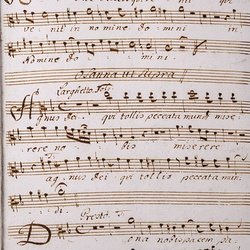 ve nit in no mine do mi ni
No mine do mi ni
Osanna ut supra
Larghetto
Agnus dei qui tollis peccata mundi mise
rere no bis miserere
ag nus dei qui tollis peccata mun
Presto
Dona nobis pacem